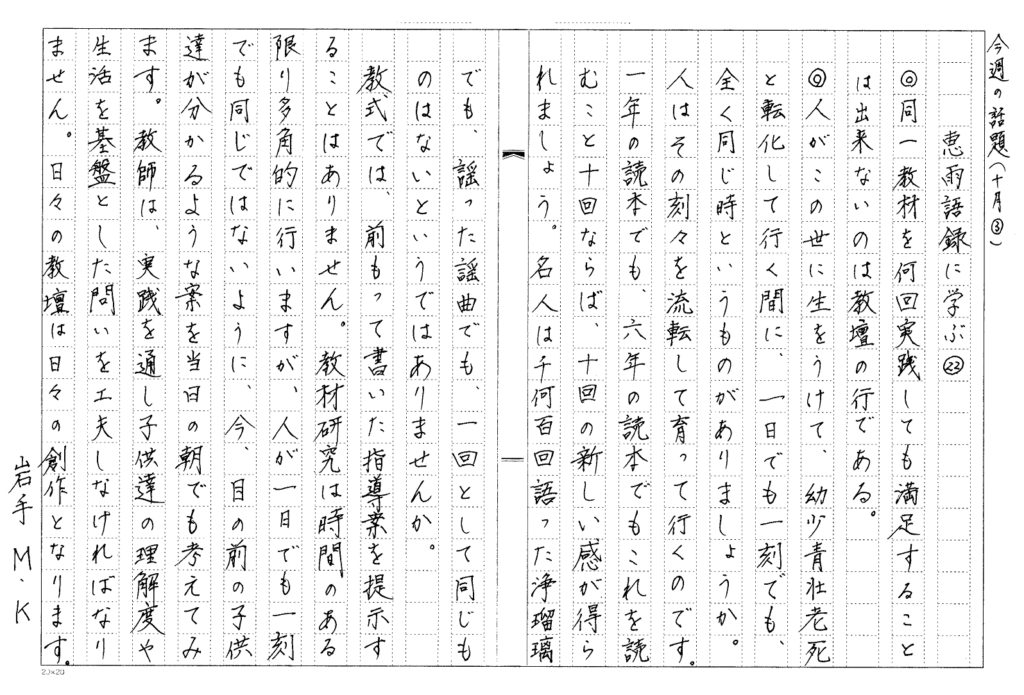 今週の話題(十月③)
恵雨語録に学ぶ㉒
◎同一教材を何回実践しても満足すること
は出来ないのは教壇の行である。
◎人がこの世に生をうけて、幼少青壮老死
と転化して行く間に、一日でも一刻でも、
全く同じ時というものがありましょうか。
人はその刻々を流転して育って行くのです。
一年の読本でも、六年の読本でもこれを読
むこと十回ならば、十回の新しい感が得ら
れましょう。名人は千何百回語った浄瑠璃
でも、謡った謡曲でも、一回として同じも
のはないというではありませんか。
教式では、前もって書いた指導案を提示す
ることはありません。教材研究は時間のある
限り多角的に行いますが、人が一日でも一刻
でも同じではないように、今、目の前の子供
達が分かるような案を当日の朝でも考えてみ
ます。教師は、実践を通し子供達の理解度や
生活を基盤とした問いを工夫しなければなり
ません。日々の教壇は日々の創作となります。
岩手 M・K
20×20